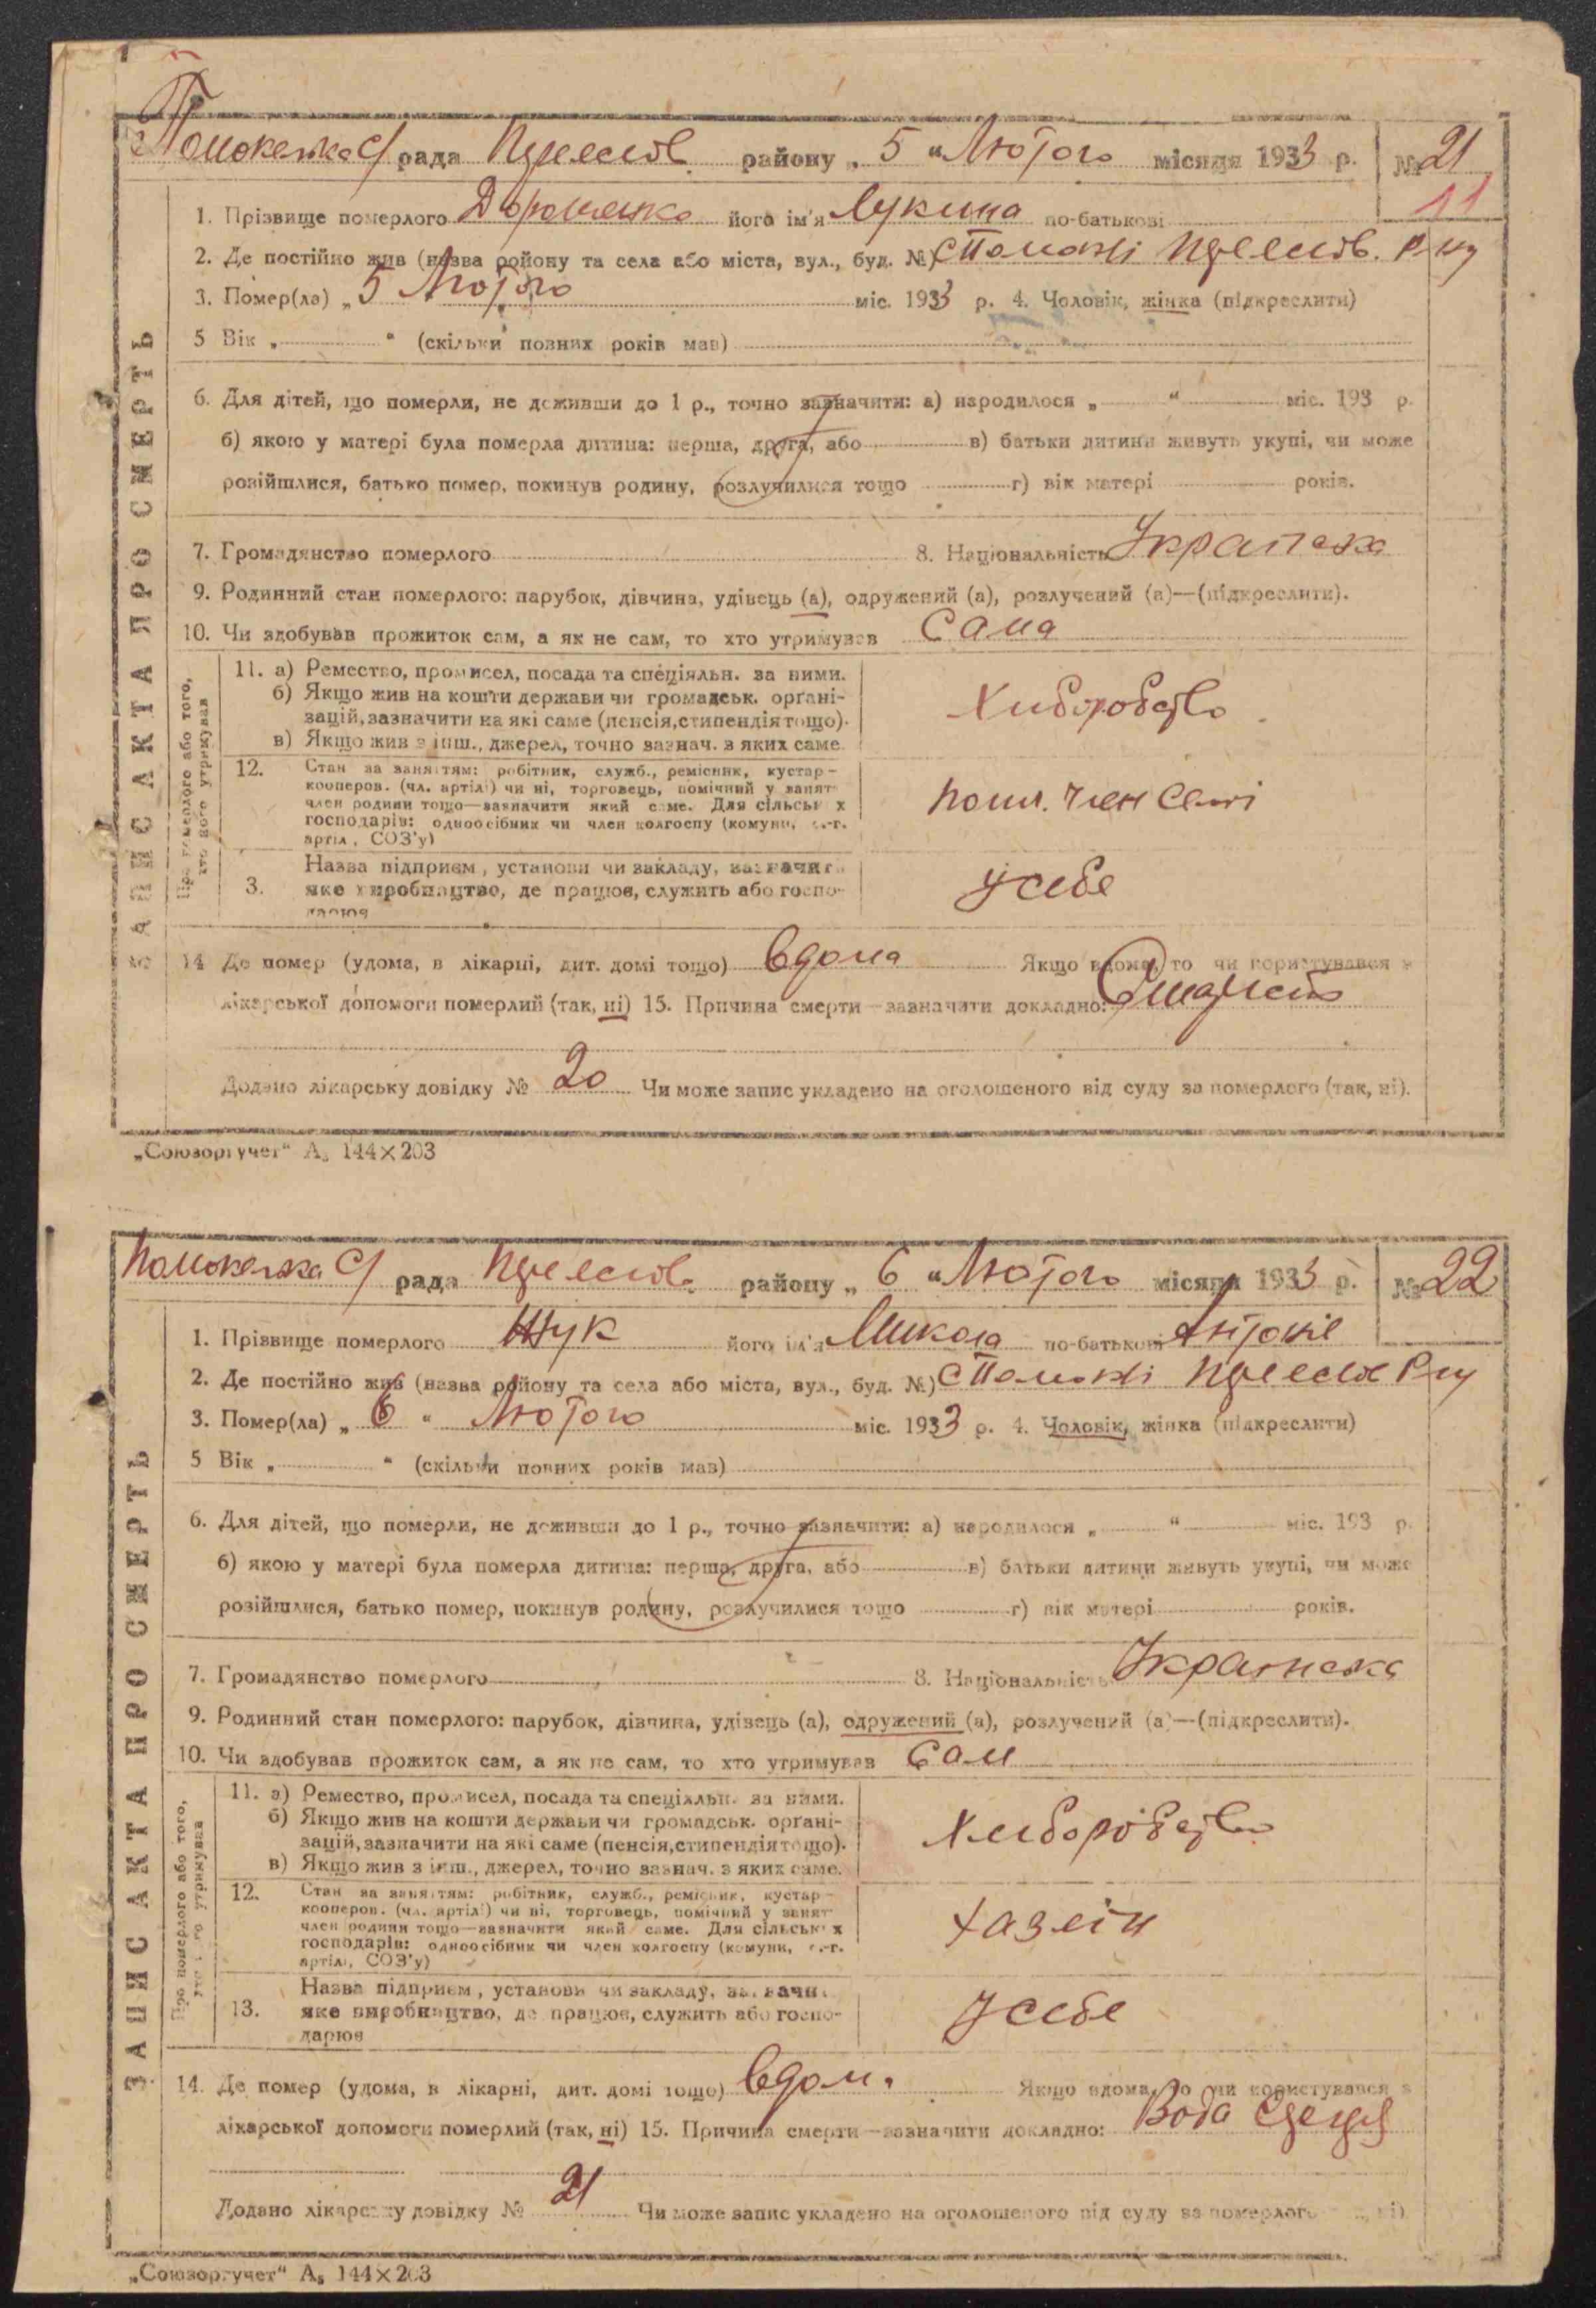 рада району „ 5 “ Лютого місяця 1933 р. № 21
11
1. Прізвище померлого його ім'я Лукина по-батькові
2. Де постійно жив (назва району та села або міста, вул., буд. №)
3. Помер(ла) „ 5 Лютого міс. 1933 р. 4. Чоловік, жінка (підкреслити)
5 Вік „ “ (скільки повних років мав)
6. Для дітей, що померли, не доживши до 1 р., точно зазначити: а) народилося „ “ міс. 193 р.
б) якою у матері була померла дитина: перша, друга, або в) батьки дитини живуть укупі, чи може
розійшлися, батько помер, покинув родину, розлучилися тощо г) вік матері років.
7. Громадянство померлого 8. Національність Українська
9. Родинний стан померлого: парубок, дівчина, удівець (а), одружений (а), розлучений (а)—(підкреслити).
10. Чи здобував прожиток сам, а як не сам, то хто утримував Сама
ЗАПИС АКТА ПРО СМЕРТЬ
Про померлого або того,
хто його утримував
11. а) Ремество, промисел, посада та спеціяльн. за ними.
б) Якщо жив на кошти держави чи громадськ. органі-
зацій, зазначити на які саме (пенсія, стипендія тощо).
в) Якщо жив з інш., джерел, точно зазнач. з яких саме.
Хліборобство
12. Стан за заняттям: робітник, служб., ремісник, кустар-
кооперов. (чл. артілі) чи ні, торговець, помічний у занят
член родини тощо—зазначити який саме. Для сільськ х
господарів: одноосібник чи член колгоспу (комуни, с.-г.
артіл, СОЗ'у)
пом. член семі
3. Назва підприєм, установи чи закладу, зазначити
яке виробництво, де працює, служить або госпо-
дарює
У себе
14 Де помер (удома, в лікарні, дит. домі тощо) вдома Якщо вдома, то чи користувався з
лікарської допомоги померлий (так, ні) 15. Причина смерти—зазначити докладно:
Додано лікарську довідку № 20 Чи може запис укладено на оголошеного від суду за померлого (так, ні).
„Союзоргучет“ А₅ 144×203
рада району „ 6 “ Лютого місяця 1933 р. № 22
1. Прізвище померлого Жук його ім'я Микола по-батькові
2. Де постійно жив (назва району та села або міста, вул., буд. №)
3. Помер(ла) „ 6 “ Лютого міс. 1933 р. 4. Чоловік, жінка (підкреслити)
5 Вік „ “ (скільки повних років мав)
6. Для дітей, що померли, не доживши до 1 р., точно зазначити: а) народилося „ “ міс. 193 р.
б) якою у матері була померла дитина: перша, друга, або в) батьки дитини живуть укупі, чи може
розійшлися, батько помер, покинув родину, розлучилися тощо г) вік матері років.
7. Громадянство померлого 8. Національність Українська
9. Родинний стан померлого: парубок, дівчина, удівець (а), одружений (а), розлучений (а)—(підкреслити).
10. Чи здобував прожиток сам, а як не сам, то хто утримував Сам
ЗАПИС АКТА ПРО СМЕРТЬ
Про померлого або того,
хто його утримував
11. а) Ремество, промисел, посада та спеціяльн. за ними.
б) Якщо жив на кошти держави чи громадськ. органі-
зацій, зазначити на які саме (пенсія, стипендія тощо).
в) Якщо жив з інш., джерел, точно зазнач. з яких саме.
Хліборобство
12. Стан за заняттям: робітник, служб., ремісник, кустар-
кооперов. (чл. артілі) чи ні, торговець, помічний у занят
член родини тощо—зазначити який саме. Для сільськ х
господарів: одноосібник чи член колгоспу (комуни, с.-г.
артілі, СОЗ'у)
хазеін
13. Назва підприєм, установи чи закладу, зазначи
яке виробництво, де працює, служить або госпо-
дарює
У себе
14. Де помер (удома, в лікарні, дит. домі тощо) вдом. Якщо вдома, то чи користувався з
лікарської допомоги померлий (так, ні) 15. Причина смерти—зазначити докладно: Вода
Додано лікарську довідку № 21 Чи може запис укладено на оголошеного від суду за померлого ні)
„Союзоргучет“ А₅ 144×203